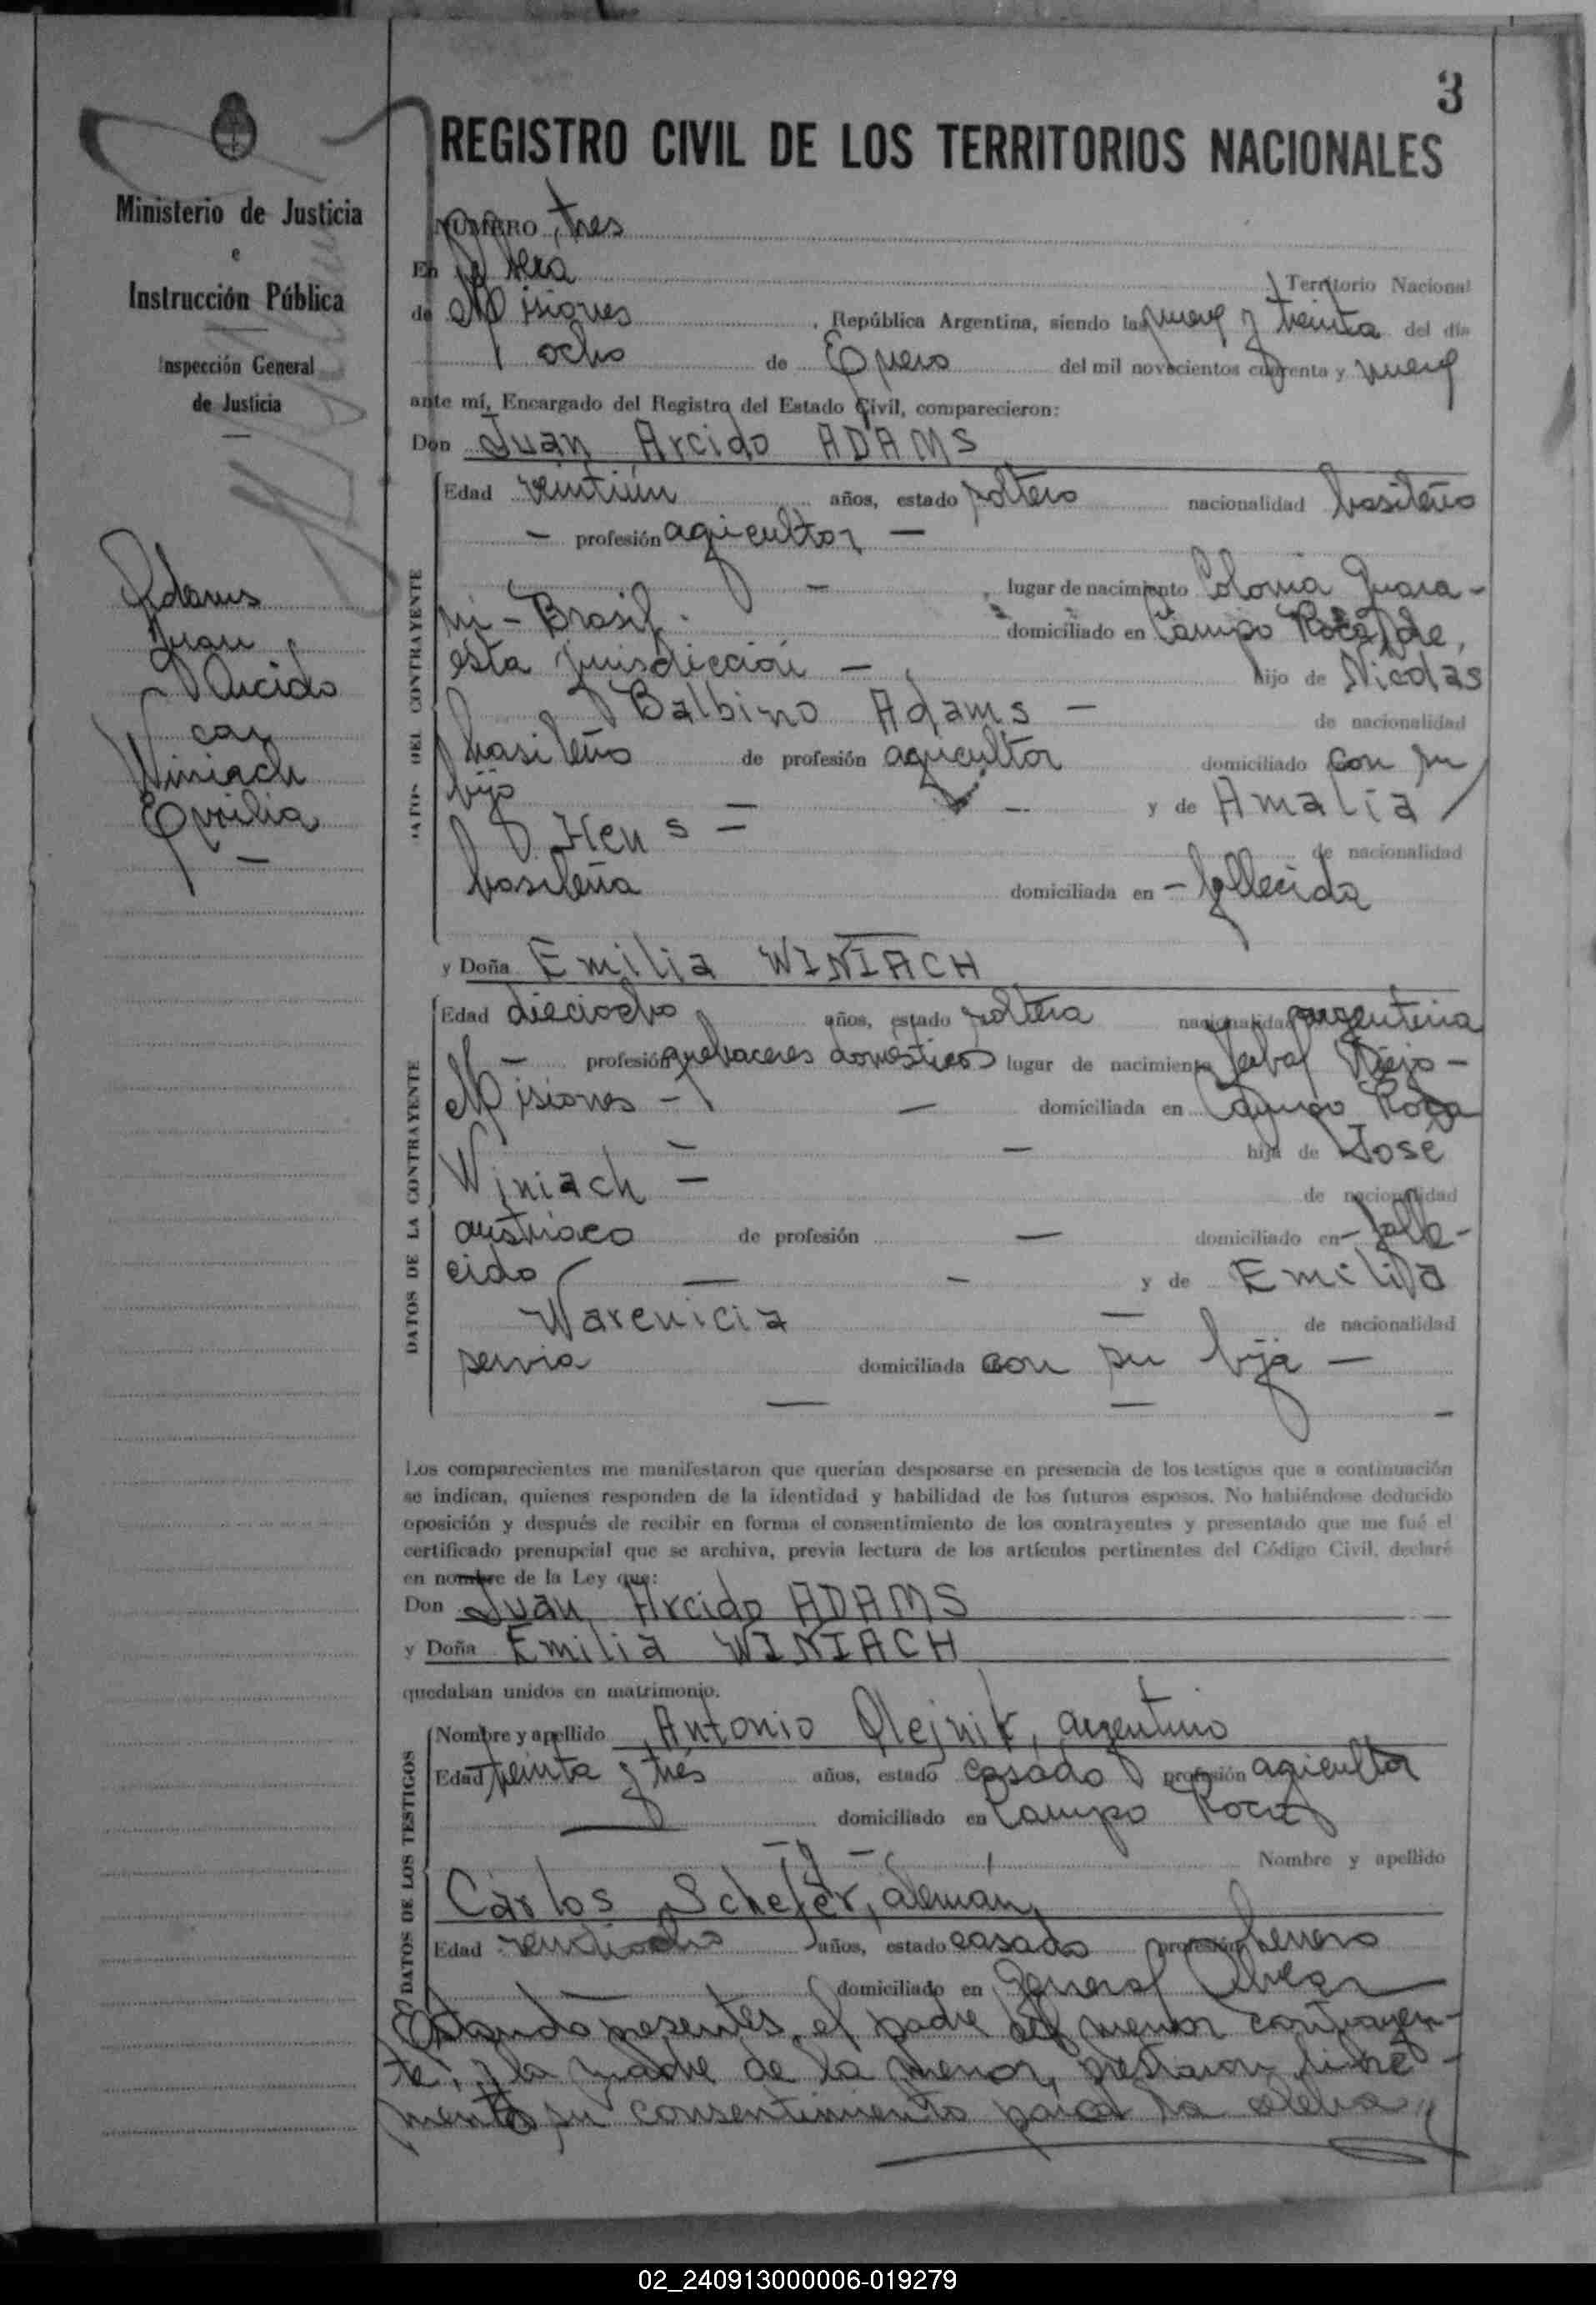 3
REGISTRO CIVIL DE LOS TERRITORIOS NACIONALES
Ministerio de Justicia
e
Instrucción Pública
Inspección General
de Justicia
Adams
Juan
Arcido
con
Winiach
Emilia
NÚMERO tres
En Territorio Nacional
de Misiones, República Argentina, siendo las nueve y treinta del día
ocho de Enero del mil novecientos cuarenta y nueve
ante mí, Encargado del Registro del Estado Civil, comparecieron:
Don Juan Arcido ADAMS
DATOS DEL CONTRAYENTE
Edad veintiún años, estado soltero nacionalidad brasileño
— profesión agricultor —
— lugar de nacimiento Colonia Guara-
ni - Brasil domiciliado en Campo Roca, de
esta jurisdicción — hijo de Nicolás
Balbino Adams — de nacionalidad
brasileño de profesión agricultor domiciliado con su
hijo — — y de Amalia
Hens — de nacionalidad
brasileña domiciliada en - fallecida
y Doña Emilia WINIACH
DATOS DE LA CONTRAYENTE
Edad dieciocho años, estado soltera nacionalidad argentina
— profesión quehaceres domésticos lugar de nacimiento Yerbal Viejo -
Misiones - — domiciliada en Campo Roca
— — hija de José
Winiach — de nacionalidad
austriaco de profesión — domiciliado en - falle-
cido — — y de Emilia
Warenicia — de nacionalidad
servia domiciliada con su hija —
— — —
Los comparecientes me manifestaron que querían desposarse en presencia de los testigos que a continuación
se indican, quienes responden de la identidad y habilidad de los futuros esposos. No habiéndose deducido
oposición y después de recibir en forma el consentimiento de los contrayentes y presentado que me fué el
certificado prenupcial que se archiva, previa lectura de los artículos pertinentes del Código Civil, declaré
en nombre de la Ley que:
Don Juan Arcido ADAMS
y Doña Emilia WINIACH
quedaban unidos en matrimonio.
DATOS DE LOS TESTIGOS
Nombre y apellido Antonio Olejnik, argentino
Edad treinta y tres años, estado casado profesión agricultor
domiciliado en Campo Roca
Nombre y apellido
Carlos Schefer, alemán,
Edad veintiocho años, estado casado profesión herrero
domiciliado en General Alvear
Estando presentes, el padre del menor contrayen-
te, y la madre de la menor, prestaron libre-
mente su consentimiento para
02_240913000006-019279